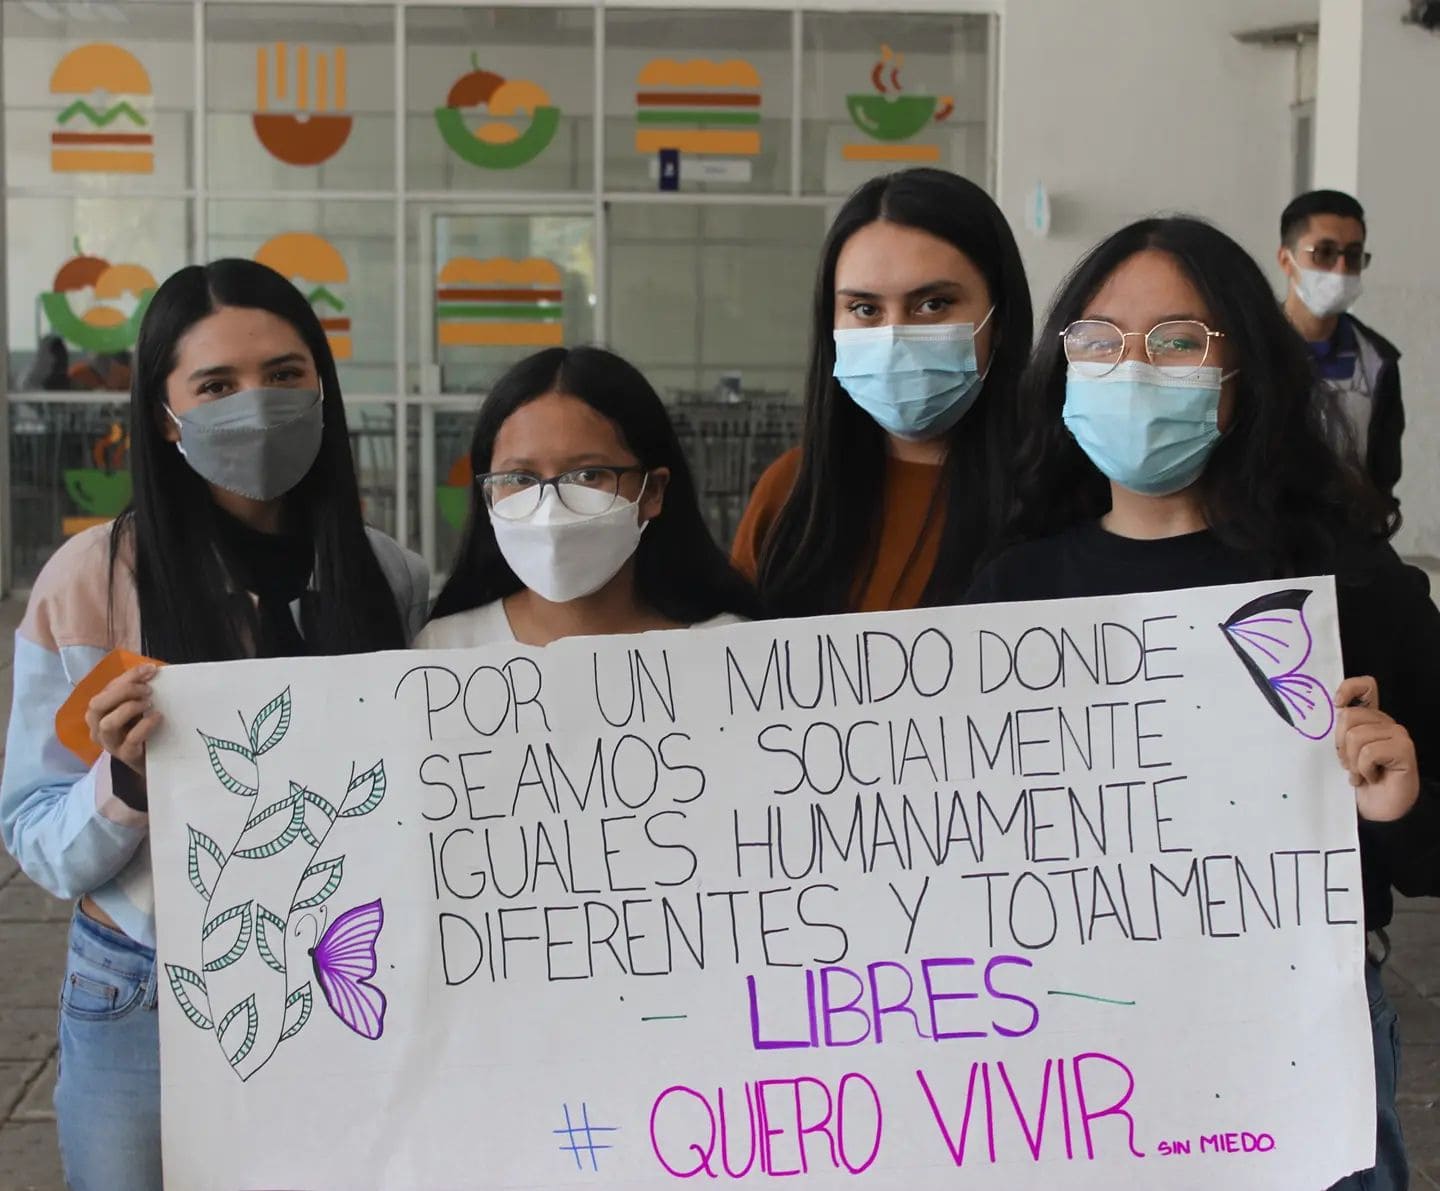 POR UN MUNDO DONDE
SEAMOS SOCIALMENTE
IGUALES HUMANAMENTE
DIFERENTES Y TOTALMENTE
- LIBRES -
# QUIERO VIVIR SIN MIEDO